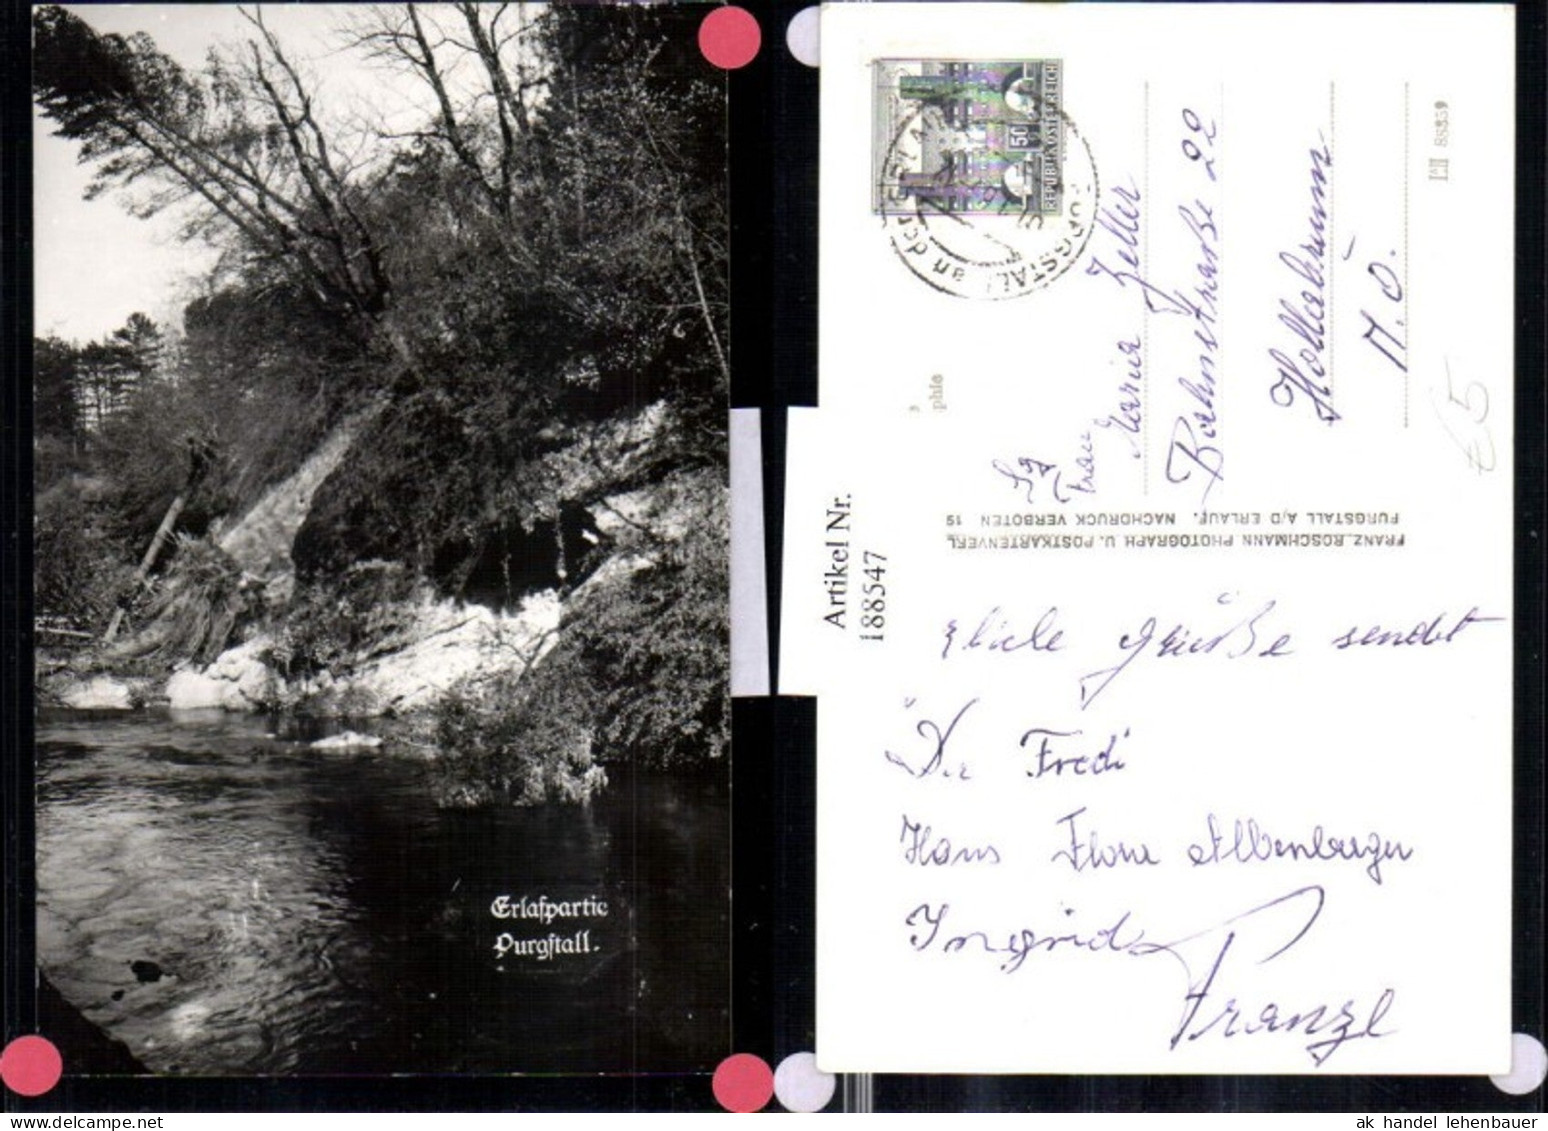 Erlafpartie
Purgstall.
REPUBLIK ÖSTERREICH
50
PURGSTALL an der ERLAF
Frau
Maria Zeller
Bahnstraße 22
Hollabrunn
N.Ö.
88859
€5
FRANZ ROSCHMANN PHOTOGRAPH U. POSTKARTENVERL
PURGSTALL A/D ERLAUF. NACHDRUCK VERBOTEN 19
Artikel Nr.
188547
Viele Grüße sendet
Dir Fredi
Hans
Ingrid
Franzl
ak handel lehenbauer